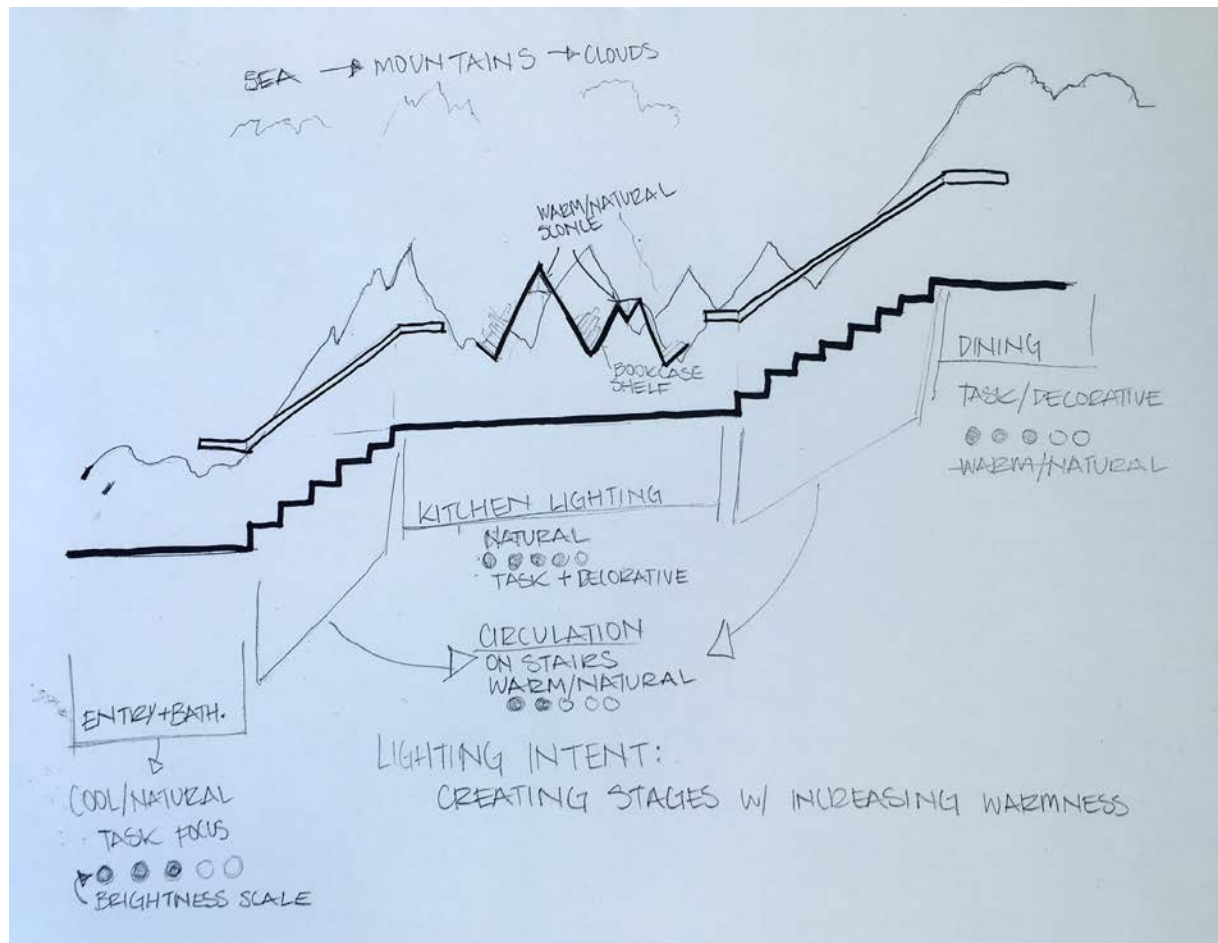 SEA → MOUNTAINS → CLOUDS
WARM/NATURAL
SCONCE
BOOKCASE
SHELF
DINING
TASK/DECORATIVE
WARM/NATURAL
KITCHEN LIGHTING
NATURAL
TASK + DECORATIVE
CIRCULATION
ON STAIRS
WARM/NATURAL
ENTRY+BATH.
COOL/NATURAL
TASK FOCUS
BRIGHTNESS SCALE
LIGHTING INTENT:
CREATING STAGES W/ INCREASING WARMNESS